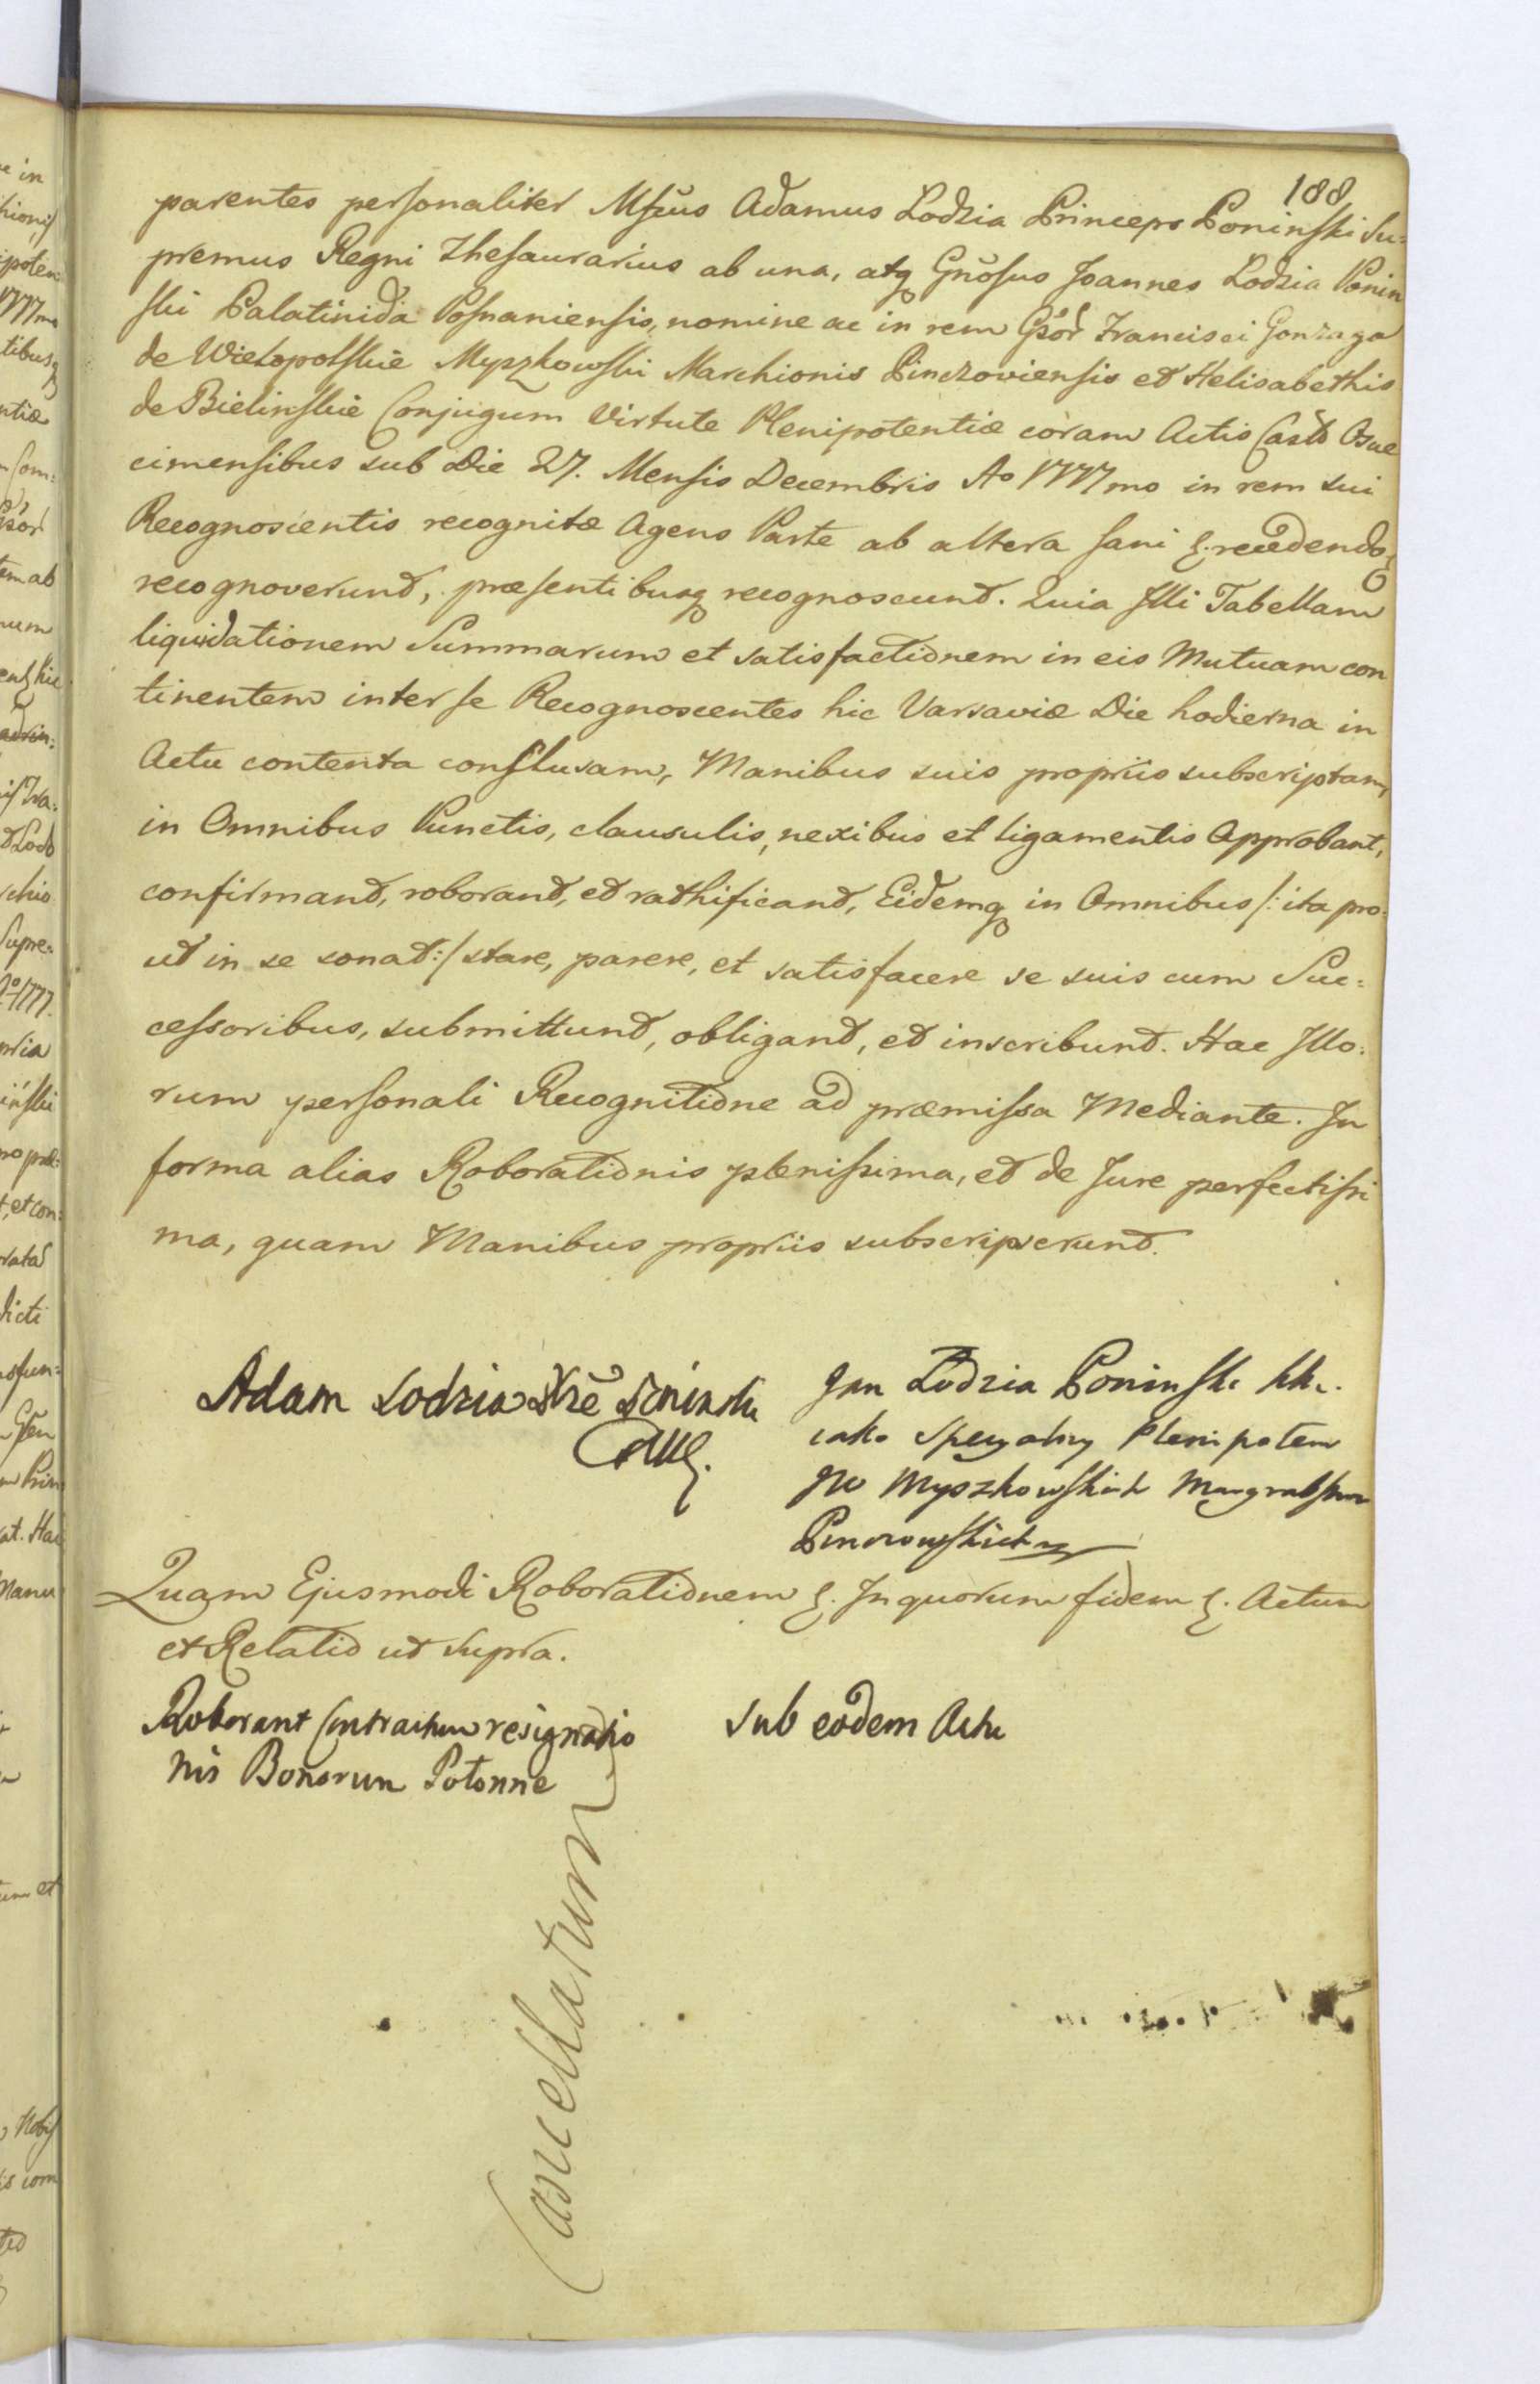 188
parentes personaliter Mfcus Adamus Lodzia Princeps Poninski Su=
premus Regni Thesaurarius ab una, atq Gnosus Joannes Lodzia Ponin
ski Palatinida Posnaniensis, nomine ac in rem Gsor Francisci Gonzaga
de Wielopolskie Myszkowski Marchionis Pinczoviensis et Helisabethis
de Bielinskie Conjugum Virtute Plenipotentiæ coram Actis Castr Oswe
cimensibus sub Die 27. Mensis Decembris Ao 1777mo in rem sui
Recognoscientis recognitæ Agens Parte ab altera sani &. recedendoq
recognoverunt, præsentibusq recognoscunt. Quia Illi Tabellam
liquidationem Summarum et satisfactionem in eis Mutuam con
tinentem inter se Recognoscentes hic Varsaviæ Die hodierna in
Actu contenta conflusam, Manibus suis propriis subscriptam,
in Omnibus Punctis, clausulis, nexibus et ligamentis Approbant,
confirmant, roborant, et rathificant, Eidemq in Omnibus /: ita pro=
ut in se sonat :/ stare, parere, et satisfacere se suis cum Suc=
cessoribus, submittunt, obligant, et inscribunt. Hac Illo=
rum personali Recognitione ad præmissa Mediante. In
forma alias Roborationis plenissima, et de Jure perfectissi
ma, quam Manibus propriis subscripserunt.
Adam Lodzia Xże Poninski
Jan Lodzia Poninski
iako specyalny Plenipotent
JW Myszkowskich Margrabstwa
Pinczowskich
Quam Ejusmodi Roborationem &. In quorum fidem &. Actum
et Relatio ut supra.
Roborant Contractum resignatio
nis Bonorum Potonne
sub eodem Actu
Cancellatum